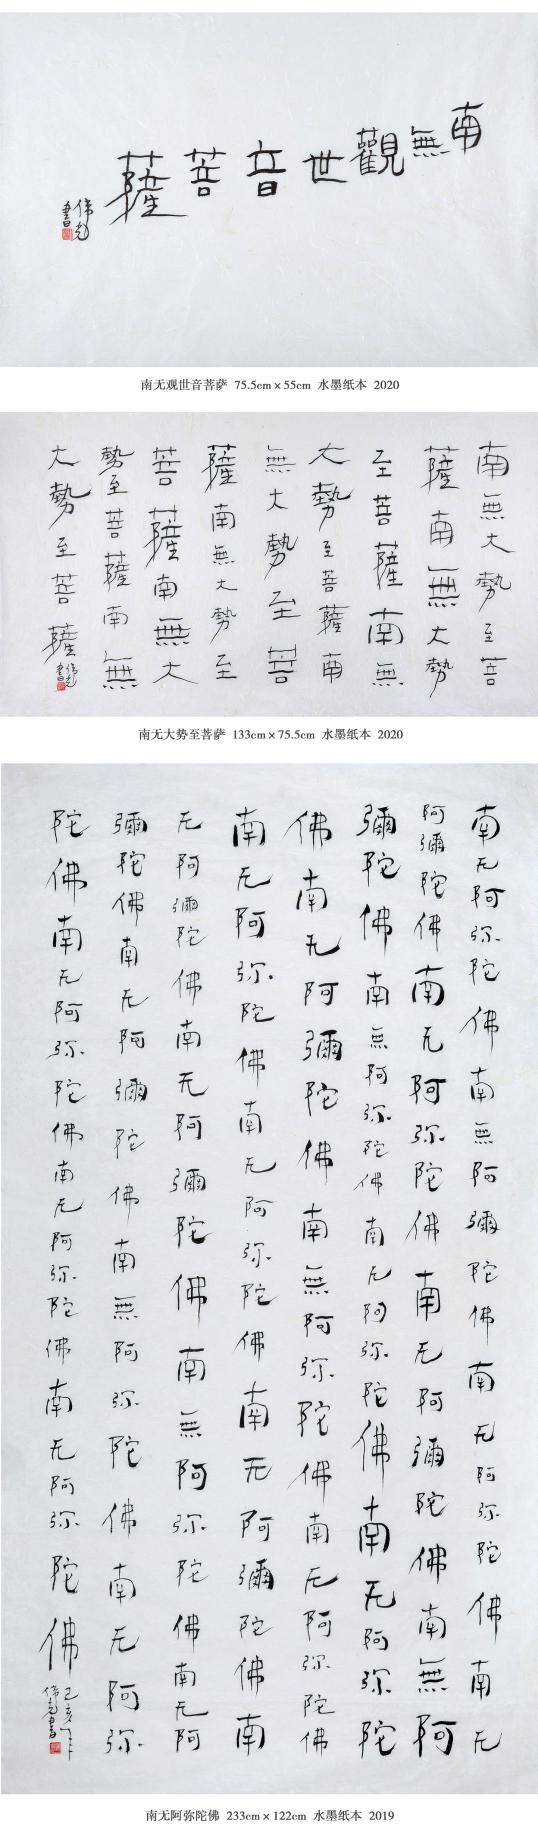 南無觀世音菩薩
南无观世音菩萨 75.5cm×55cm 水墨纸本 2020
南無大勢至菩
薩南無大勢
至菩薩南無
大勢至菩薩南
無大勢至菩
薩南無大勢至
菩薩南無大
勢至菩薩南無
大勢至菩薩
南无大势至菩萨 133cm×75.5cm 水墨纸本 2020
南无阿弥陀佛南無阿彌陀佛南无阿弥陀佛南无
阿彌陀佛南无阿弥陀佛南无阿彌陀佛南無阿
彌陀佛南無阿弥陀佛南无阿弥陀佛南无阿弥陀
佛南无阿彌陀佛南無阿弥陀佛南无阿弥陀佛
南无阿弥陀佛南无阿弥陀佛南无阿彌陀佛南
无阿彌陀佛南无阿彌陀佛南無阿弥陀佛南无阿
彌陀佛南无阿彌陀佛南無阿弥陀佛南无阿弥
陀佛南无阿弥陀佛南无阿弥陀佛南无阿弥陀佛
己亥年
南无阿弥陀佛 233cm×122cm 水墨纸本 2019